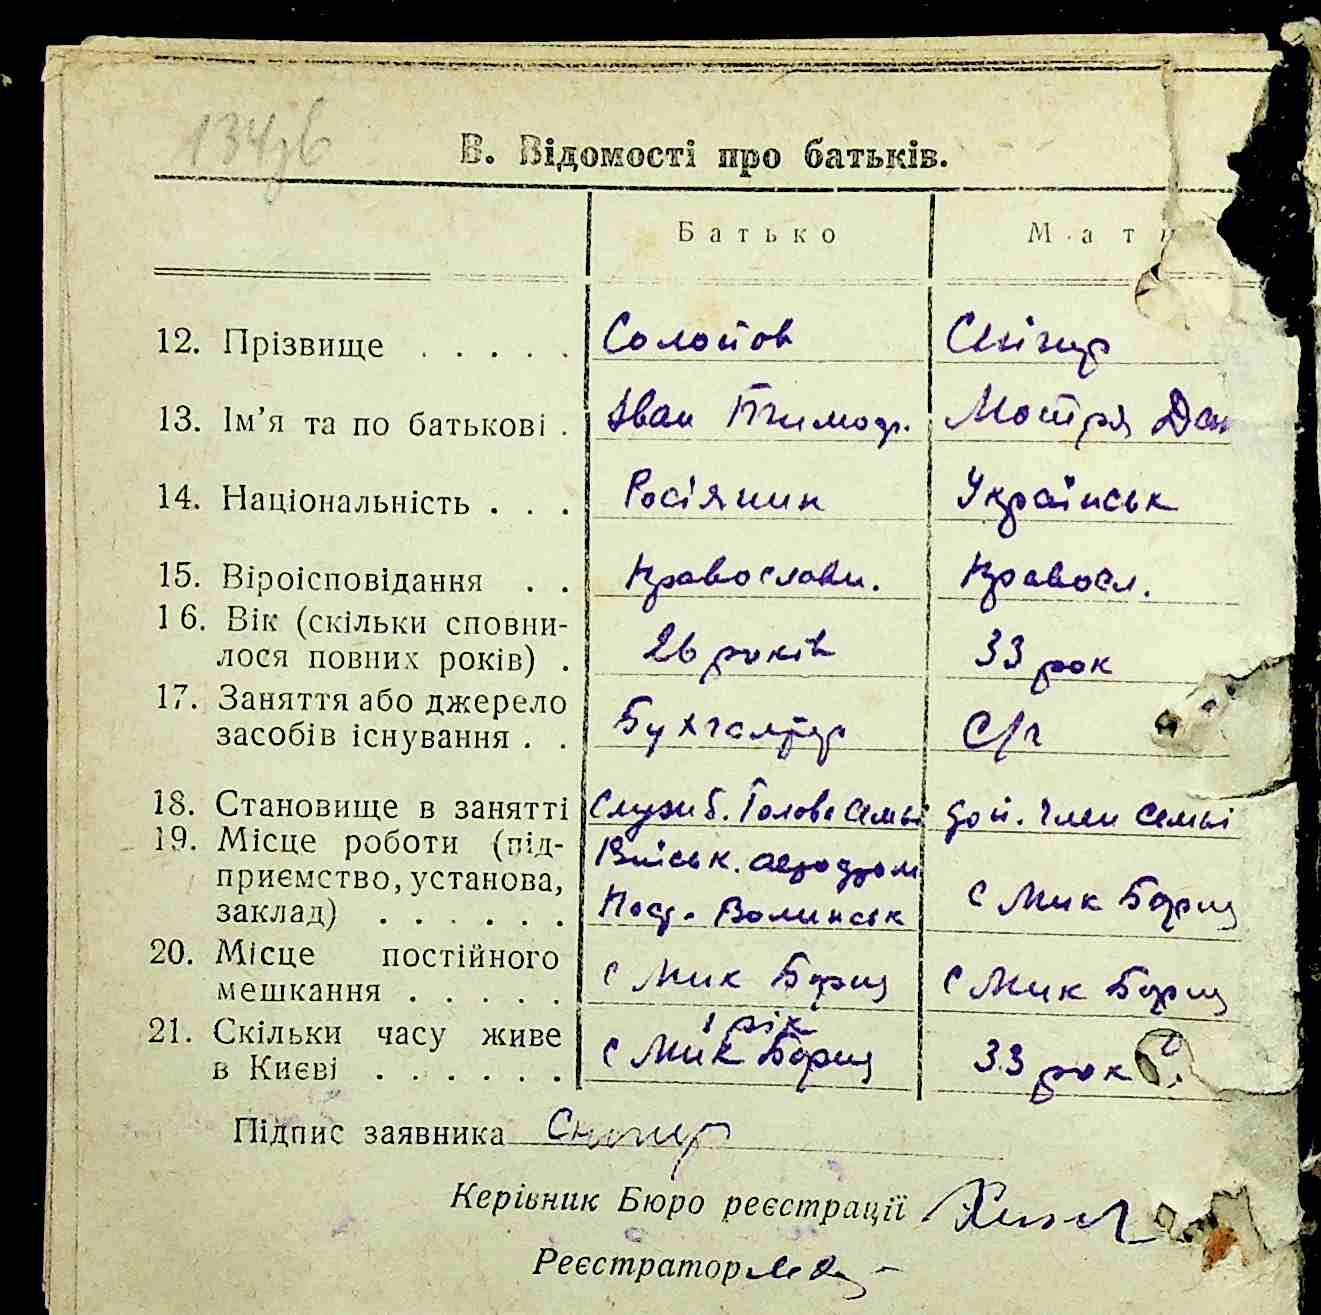 134зв
В. Відомості про батьків.
Батько Мати
12. Прізвище . . . . . Солопов Снігир
13. Ім’я та по батькові . Іван Тимоф. Мотря Дан
14. Національність . . . Росіянин Українськ
15. Віроісповідання . . Православн. Правосл.
16. Вік (скільки сповни-
лося повних років) . 26 років 33 рок
17. Заняття або джерело
засобів існування . . Бухгалтер С/г
18. Становище в занятті Служб. Голова семьі доп. член семьі
19. Місце роботи (під- Військ. аеродром
приємство, установа,
заклад) . . . . . . Пост. Волинськ с Мик Борщ
20. Місце постійного
мешкання . . . . . с Мик Борщ с Мик Борщ
21. Скільки часу живе 1 рік
в Києві . . . . . . с Мик Борщ 33 рок
Підпис заявника Снігир
Керівник Бюро реєстрації
Реєстратор